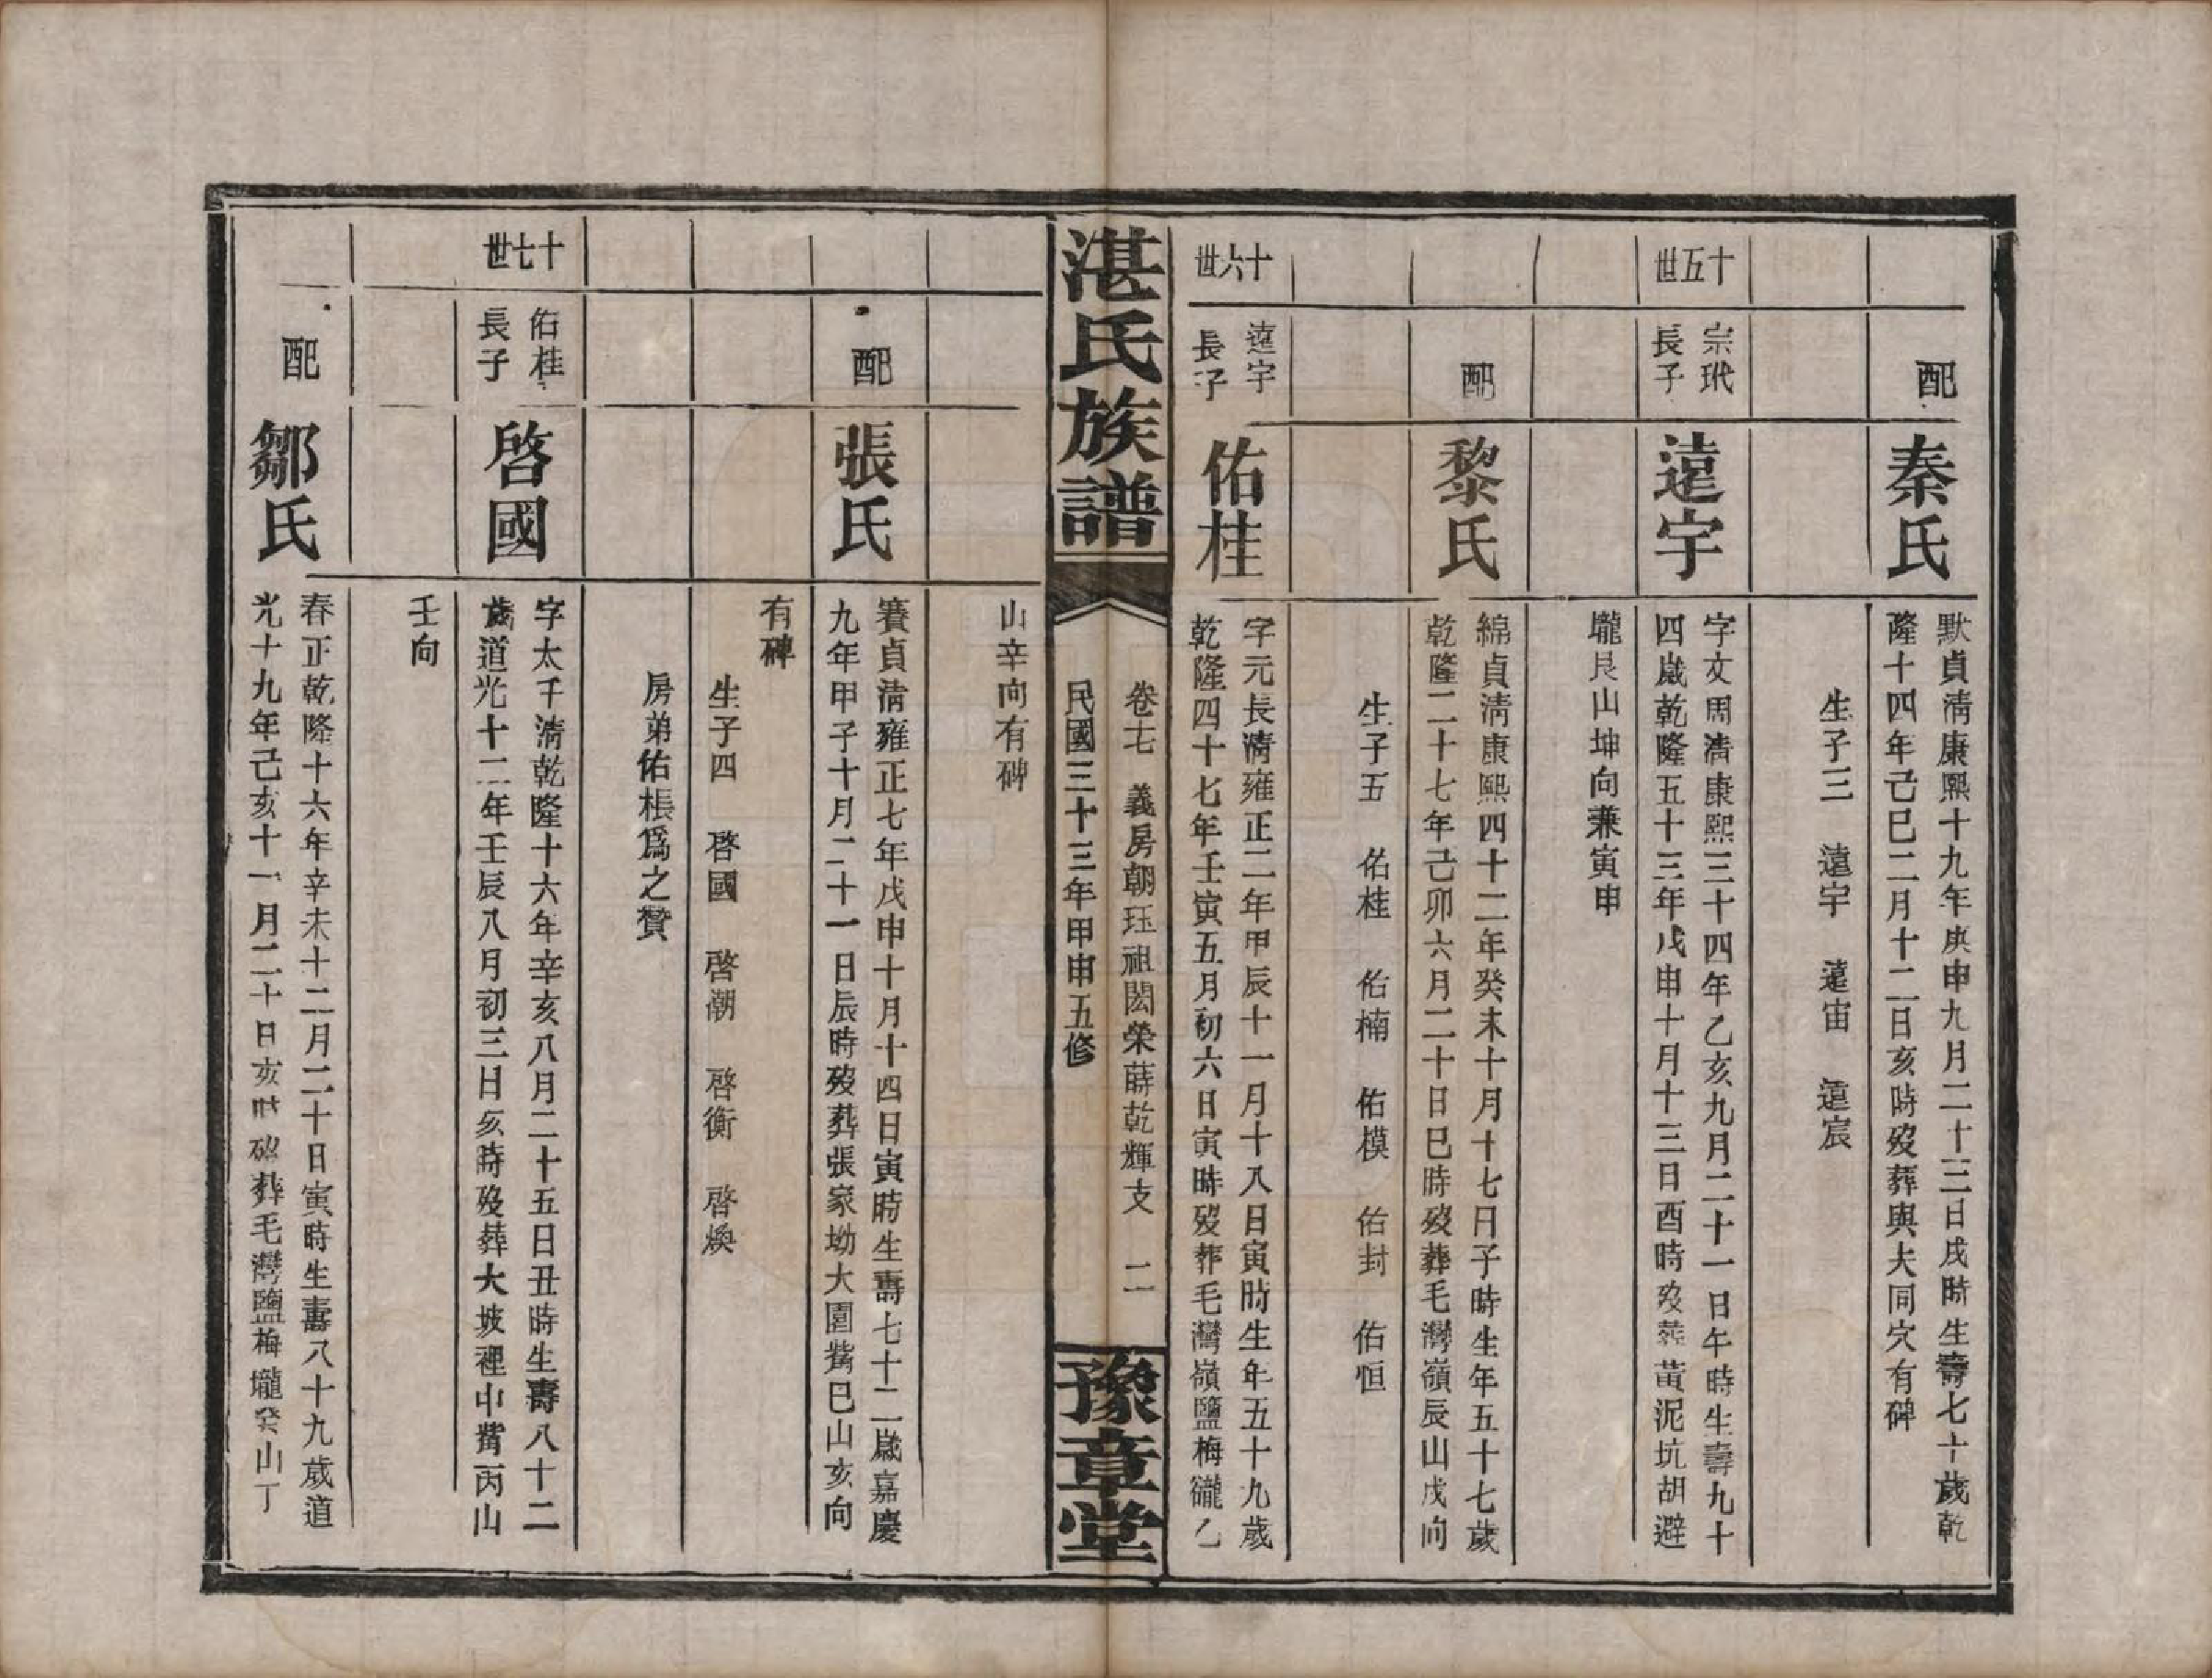 配
秦氏
默貞淸康熙十九年庚申九月二十三日戌時生壽七十歲乾
隆十四年己巳二月十二日亥時歿葬與夫同穴有碑
生子三　遠宇　遠宙　遠宸
十五世
宗玳
長子
遠宇
字文周淸康熙三十四年乙亥九月二十一日午時生壽九十
四歲乾隆五十三年戊申十月十三日酉時歿葬黃泥坑胡避
壠艮山坤向兼寅申
配
黎氏
綿貞淸康熙四十二年癸未十月十七日子時生年五十七歲
乾隆二十七年己卯六月二十日巳時歿葬毛灣嶺辰山戌向
生子五　佑桂　佑楠　佑模　佑封　佑恒
十六世
遠宇
長子
佑桂
字元長淸雍正二年甲辰十一月十八日寅時生年五十九歲
乾隆四十七年壬寅五月初六日寅時歿葬毛灣嶺鹽梅壠乙
湛氏族譜
卷七　義房朝珏祖閎榮蒔乾輝支　二
民國三十三年甲申五修
豫章堂
山辛向有碑
配
張氏
賽貞淸雍正七年戊申十月十四日寅時生壽七十二歲嘉慶
九年甲子十月二十一日辰時歿葬張家坳大園觜巳山亥向
有碑
生子四　啓國　啓潮　啓衡　啓煥
房弟佑棖爲之贊
十七世
佑桂
長子
啓國
字太千淸乾隆十六年辛亥八月二十五日丑時生壽八十二
歲道光十二年壬辰八月初三日亥時歿葬大坡裡中觜丙山
壬向
配
鄒氏
春正乾隆十六年辛未十二月二十日寅時生壽八十九歲道
光十九年己亥十一月二十日亥時歿葬毛灣鹽梅壠癸山丁